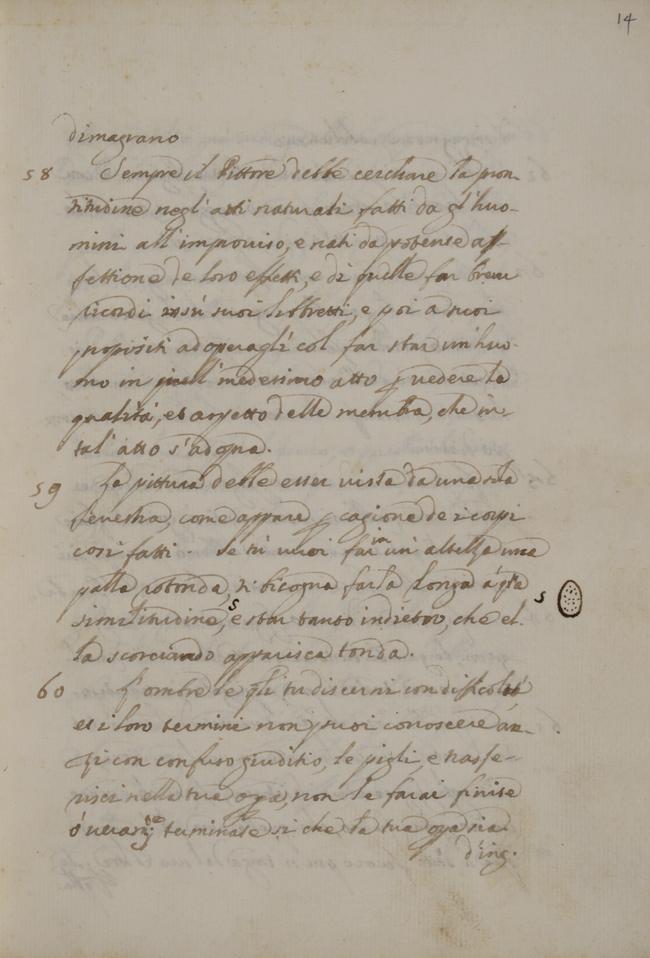 14
dimagrano
58 Sempre il Pittore debbe cerchare la pron
titudine negl'atti naturali fatti da gl'huo-
mini all'improuiso, e nati da potense af-
fettione de loro effetti, e di quelle far breui
ricordi insù suoi libbretti, e poi a suoi
propisiti adoperagli col far star un'huo-
mo in quell'medesimo atto p vedere la
qualità, et aspetto delle membra, che in-
tal'atto s'adopra.
59 La pittura debbe esser vista da una sola
fenestra, come appare p cagione de i corpi
così fatti. Se tù vuoi far in un'altezza una
palla rotonda, ti bisogna farla longa à q̃sta
similitudine, s e star tanto indietro, che el- s
la scorciando apparisca tonda.
60 L'ombre le q̃li tu discerni con difficoltà
et i loro termini non puoi conoscere an-
zi con confuso giuditio, le pigli, e trasfe-
risci nella tua opa, non le farai finite
ó uerante terminate si che la tua opa sia
d'ing.